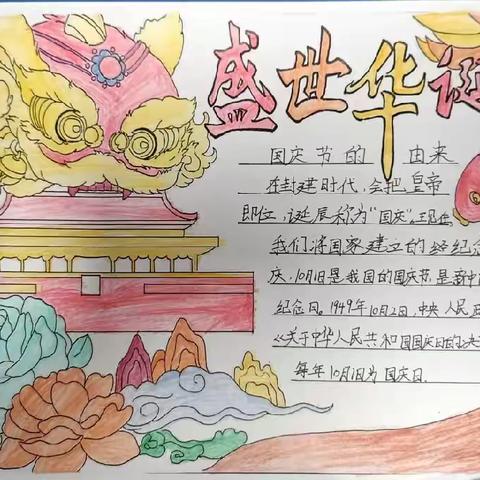 盛世华诞
国庆节的 由来
在封建时代,会把皇帝
即位,诞辰称为"国庆",现在
我们将国家建立的 纪念
庆,10月1日是我国的国庆节,是新中
纪念日。1949年10月2日,中央人民政
《关于中华人民共和国国庆日的决
每年10月1日为国庆日.